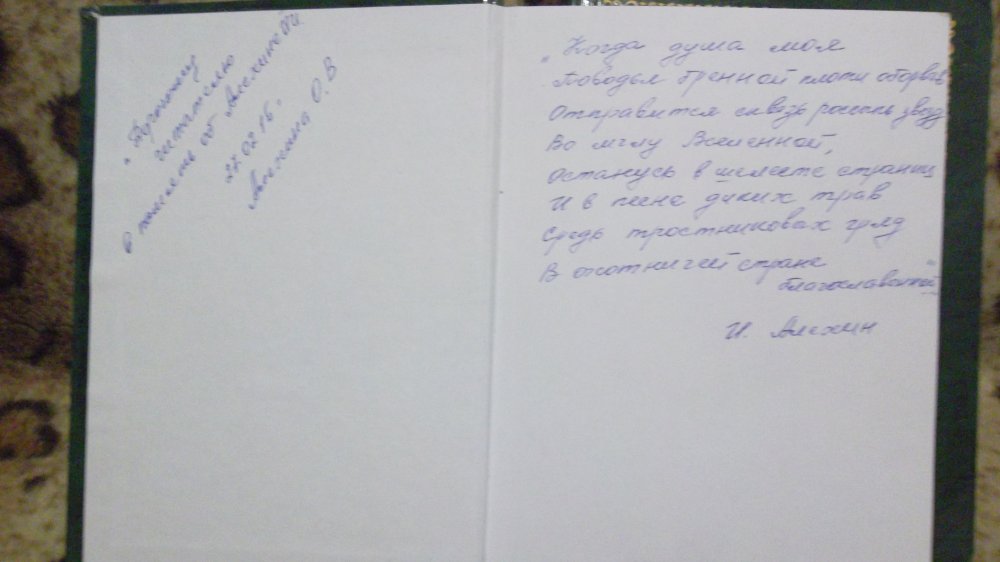 "Дорогому
читателю
о памяти об Алехине
27.02.16"
Алехина О.В
"Когда душа моя
Поводья бренной плоти оборвав
Отправится сквозь россыпь звезд
Во мглу Вселенной,
Останусь в шелесте страниц
И в песне диких трав
Средь тростниковых гряд
В охотничей стране
благославенной"
И. Алехин